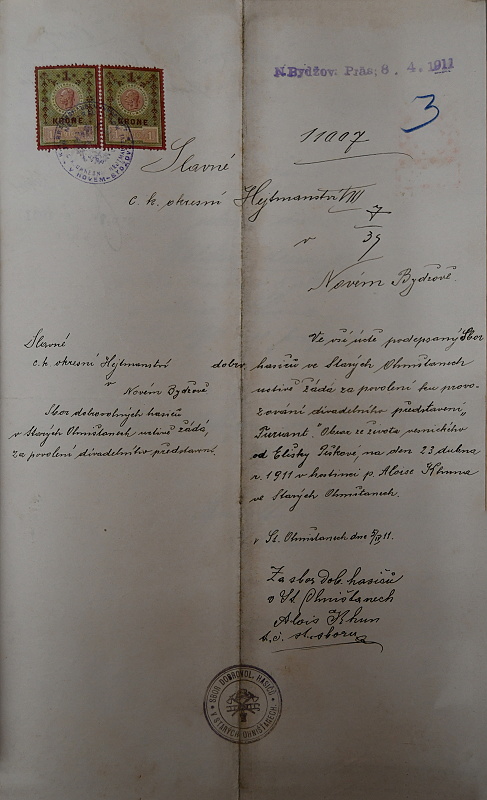 N. Bydžov. Präs: 8. 4. 1911
3
1 KRONE 1 KRONE
V NOVÉM-BYDŽOVĚ
11007
Slavné
c. k. okresní Hejtmanství VIII
7
v 39
Novém Bydžově.
Slavné
c. k. okresní Hejtmanství
v
Novém Bydžově
Sbor dobrovolných hasičů
v Starých Ohnišťanech uctivě žádá,
za povolení divadelního představení.
Ve vší úctě podepsaný Sbor
dobrov. hasičů ve Starých Ohnišťanech
uctivě žádá za povolení ku provo-
zování divadelního představení „
Furiant." Obraz ze života vesnického
od Elišky Peškové, na den 23 dubna
r. 1911 v hostinci p. Aloise Khuna
ve Starých Ohnišťanech.
v St. Ohnišťanech dne 5/IV 11.
Za sbor dob. hasičů
v St. Ohnišťanech
Alois Khun
t. č. st. sboru
SBOR DOBROVOL. HASIČŮ
V STARÝCH OHNIŠŤANECH